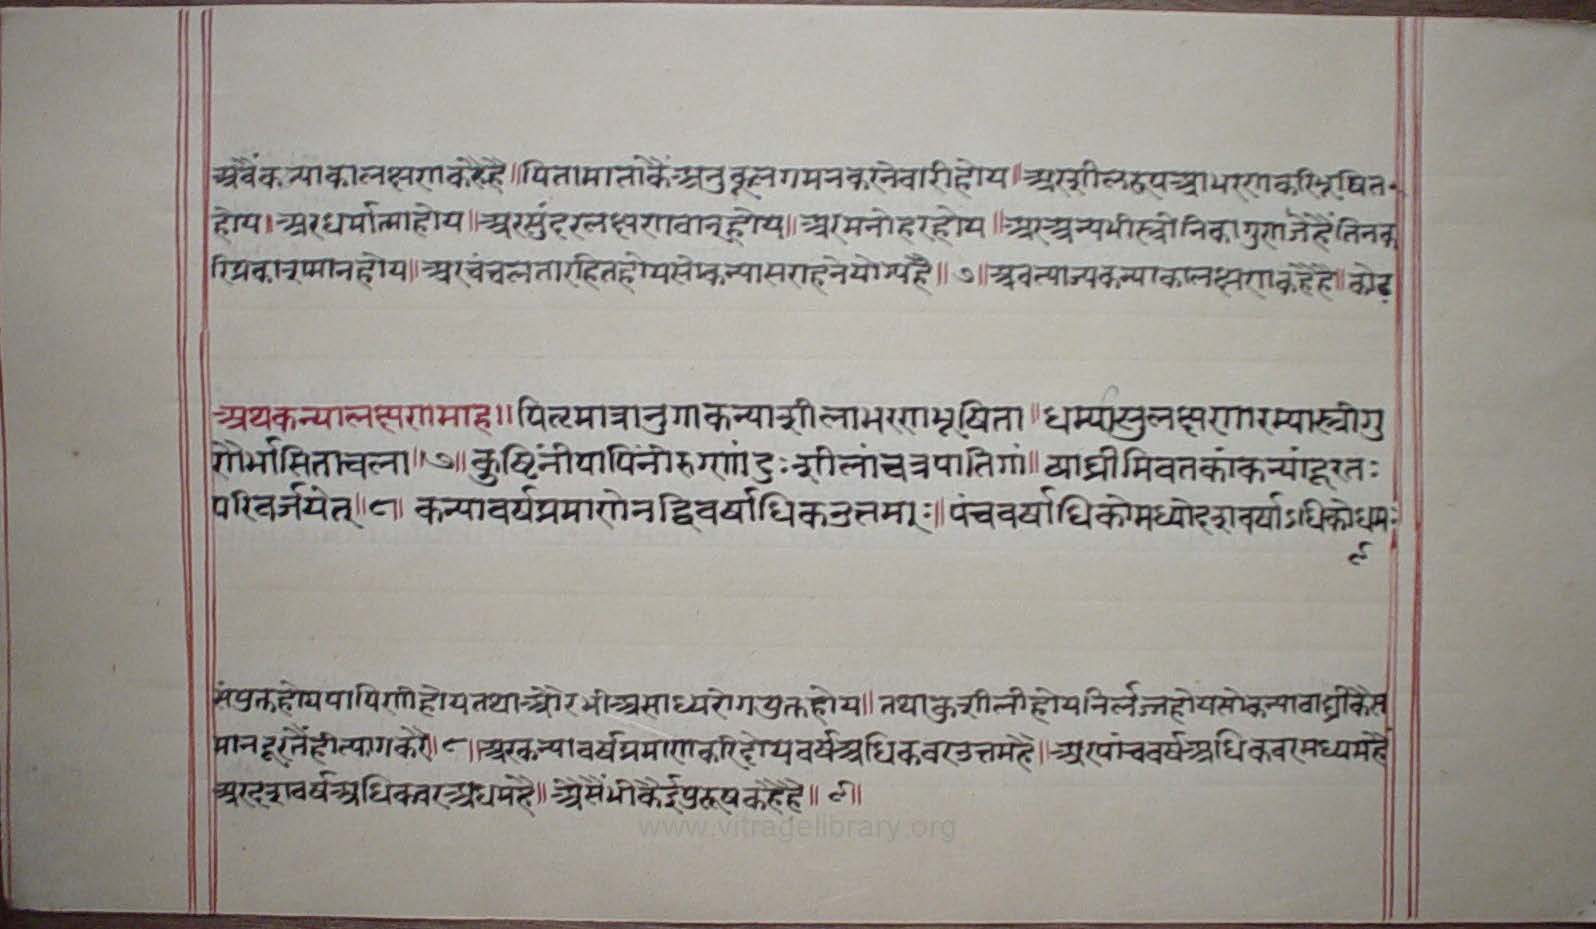 अवैंकन्याकालक्षणकहैहै॥पितामाताकैंअनुकूलगमनकरनेवारीहोय॥अरशीलरूपआभरणकरिभूषित
होय।अरधर्मात्माहोय॥अरसुंदरलक्षणवान्होय॥अरमनोहरहोय॥अरअन्यभीस्त्रीनिकागुणजेहैंतिनक
रिप्रकाश्मानहोय॥अरचंचलतारहितहोयसोकन्यासराहनेयोग्यहै॥७॥अवत्याज्यकन्याकालक्षणकहैहै॥कोढ
अथकन्यालक्षणमाह॥पितृमात्रानुगाकन्याशीलाभरणभूषिता॥धर्म्यासुलक्षणारम्यास्त्रीगु
णैर्भासिताचला॥७॥कुष्टिनींपापिनींरुग्णांदुःशीलांचत्रपातिगां॥व्याघ्रीमिवतकांकन्यांदूरतः
परिवर्जयेत्॥८॥कन्यावर्षप्रमाणेनद्विवर्षाधिकउत्तमः॥पंचवर्षाधिकोमध्योदशवर्षाऽधिकोधमः
९
संयुक्तहोयपापिणीहोयतथाऔरभीअसाध्यरोगयुक्तहोय॥तथाकुशीलीहोयनिर्लज्जहोयसोकन्यावाघ्रीकैस
मानदूरतैंहीत्यागकरै॥८॥अरकन्यावर्षप्रमाणकरिदोयवर्षअधिकवरउत्तमहै॥अरपांचवर्षअधिकवरमध्यमहै
अरदशवर्षअधिकवरअधमहै॥अैसैंभीकैईपुरुषकहैहै॥९॥
www.vitragelibrary.org